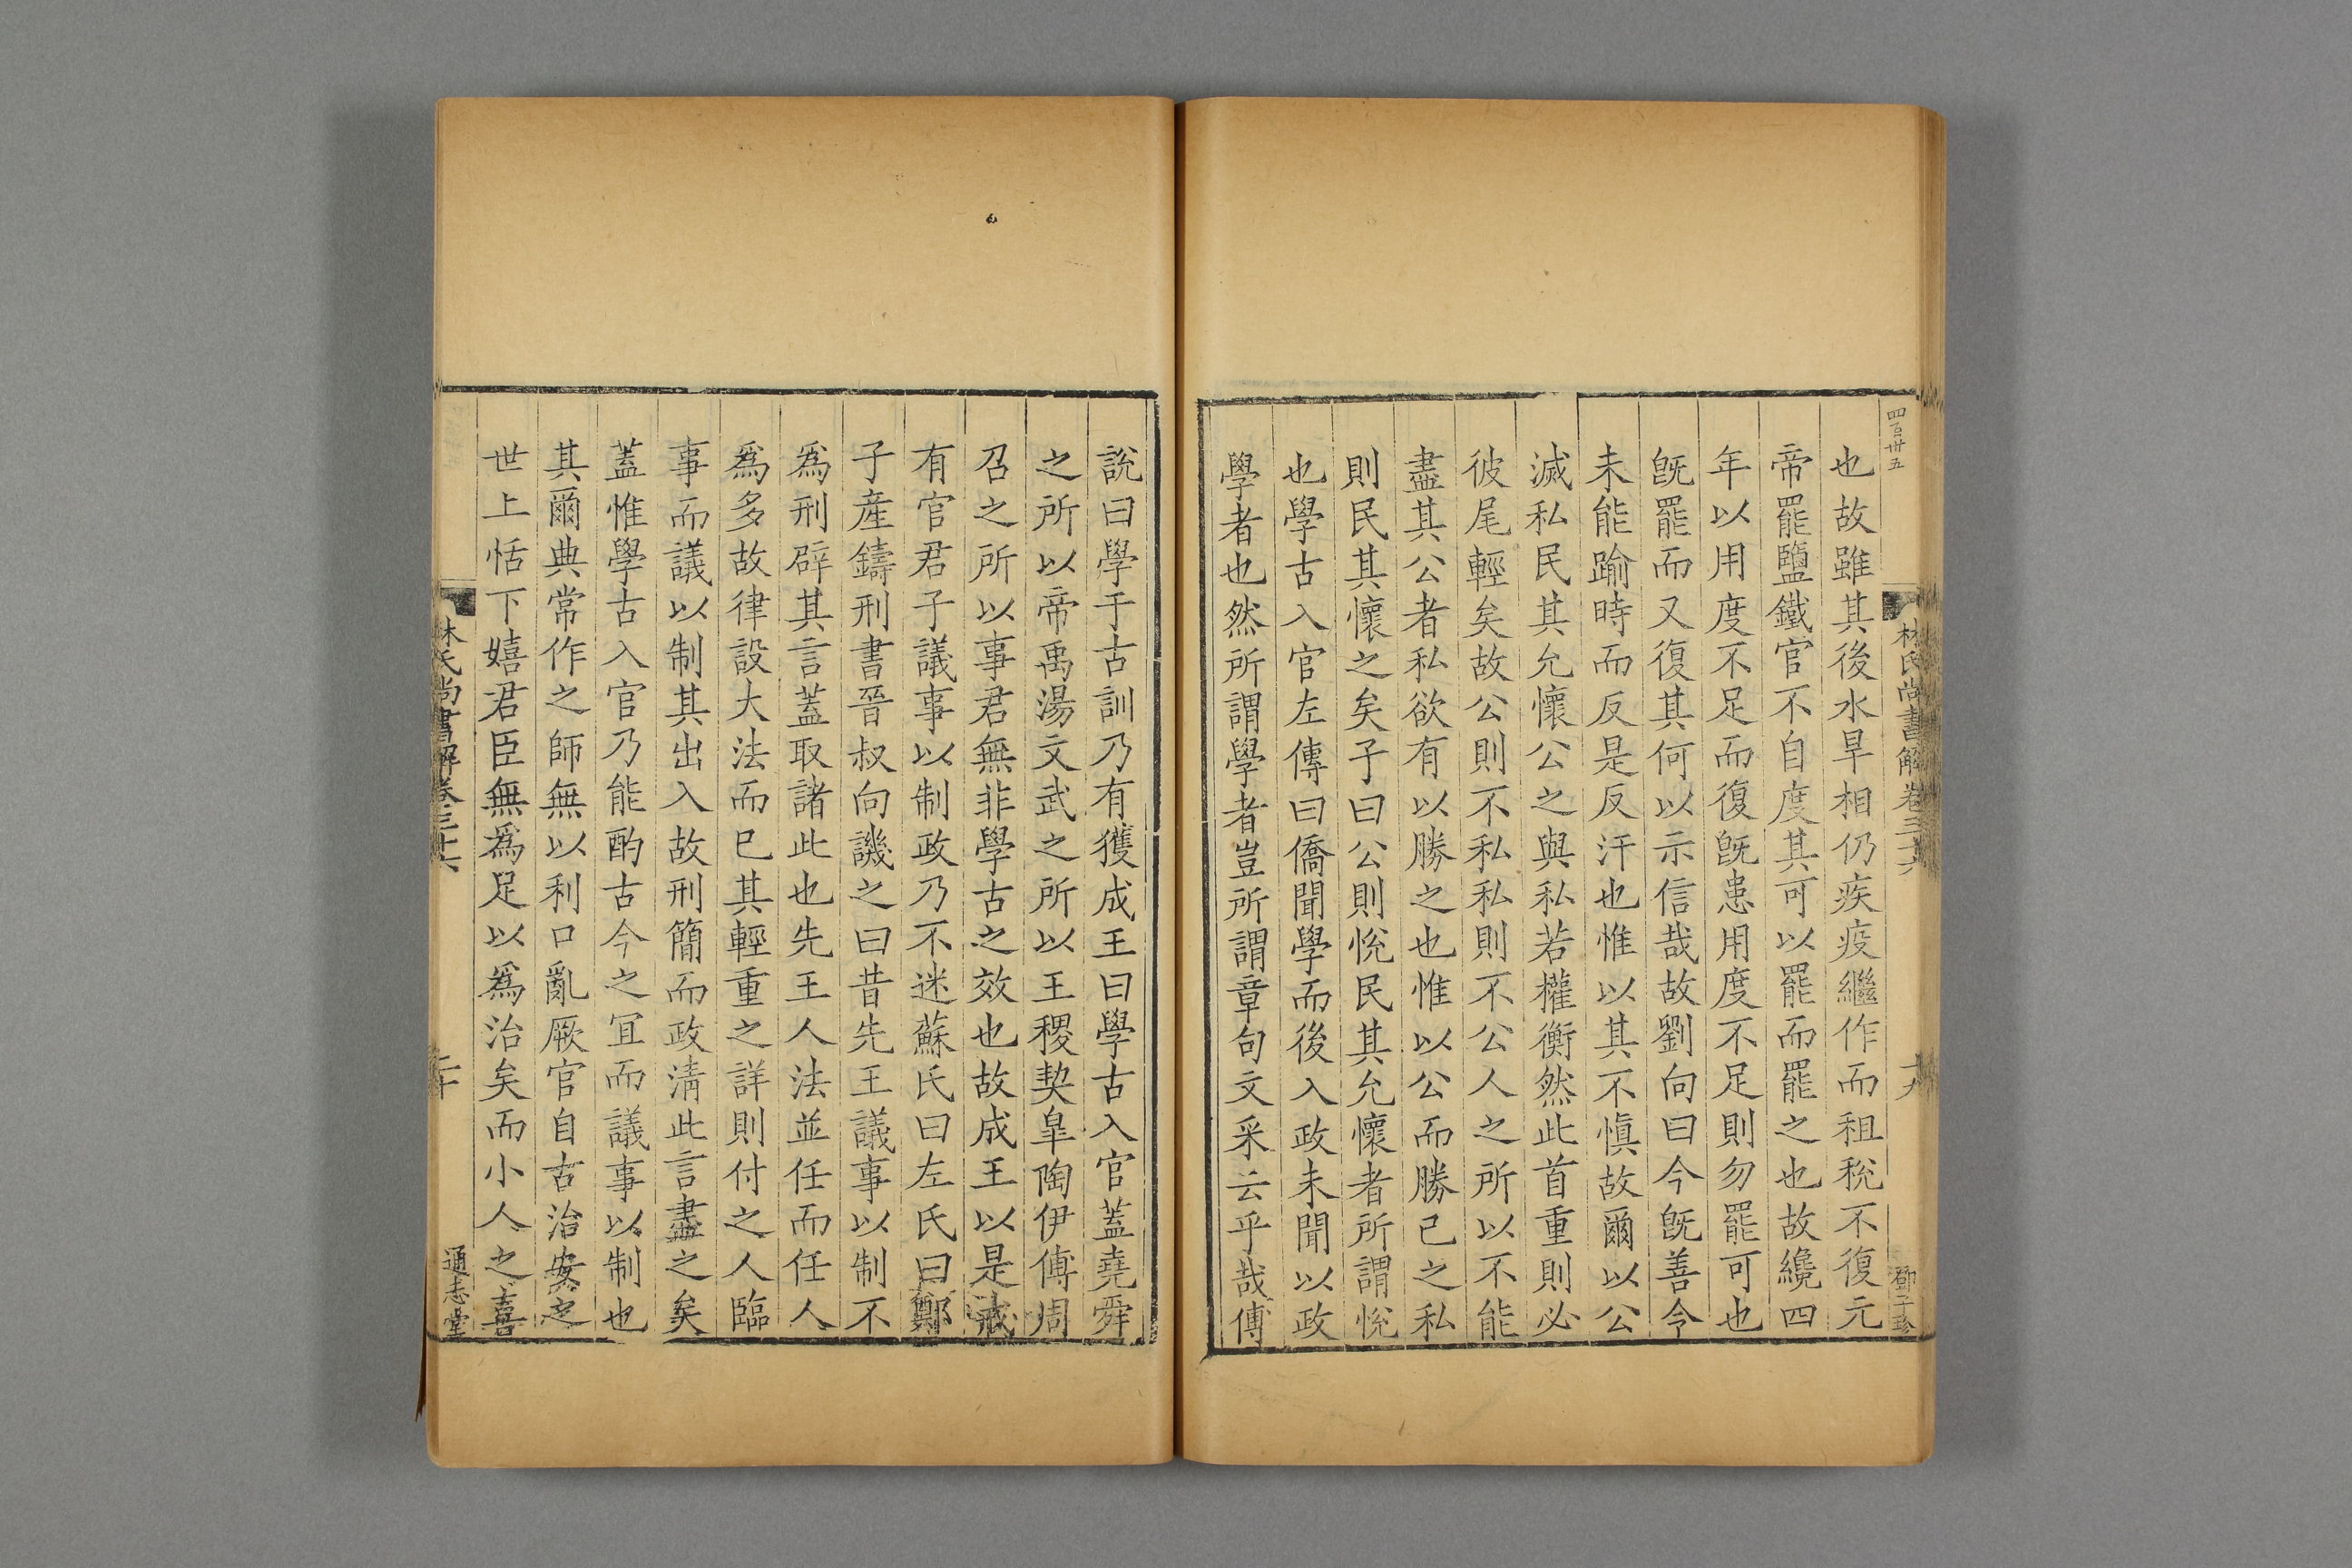 四百卅五
林氏尚書解卷三十六
十九
鄧子珍
也故雖其後水旱相仍疾疫繼作而租稅不復元
帝罷鹽鐵官不自度其可以罷而罷之也故纔四
年以用度不足而復旣患用度不足則勿罷可也
旣罷而又復其何以示信哉故劉向曰今旣善令
未能踰時而反是反汗也惟以其不愼故爾以公
滅私民其允懷公之與私若權衡然此首重則必
彼尾輕矣故公則不私私則不公人之所以不能
盡其公者私欲有以勝之也惟以公而勝己之私
則民其懷之矣子曰公則悅民其允懷者所謂悅
也學古入官左傳曰僑聞學而後入政未聞以政
學者也然所謂學者豈所謂章句文采云乎哉傅
說曰學于古訓乃有獲成王曰學古入官蓋堯舜
之所以帝禹湯文武之所以王稷契皐陶伊傅周
召之所以事君無非學古之效也故成王以是戒
有官君子議事以制政乃不迷蘇氏曰左氏曰鄭
子産鑄刑書晉叔向譏之曰昔先王議事以制不
爲刑辟其言蓋取諸此也先王人法並任而任人
爲多故律設大法而已其輕重之詳則付之人臨
事而議以制其出入故刑簡而政淸此言盡之矣
蓋惟學古入官乃能酌古今之宜而議事以制也
其爾典常作之師無以利口亂厥官自古治安之
世上恬下嬉君臣無爲足以爲治矣而小人之喜
林氏尚書解卷三十六
二十
通志堂